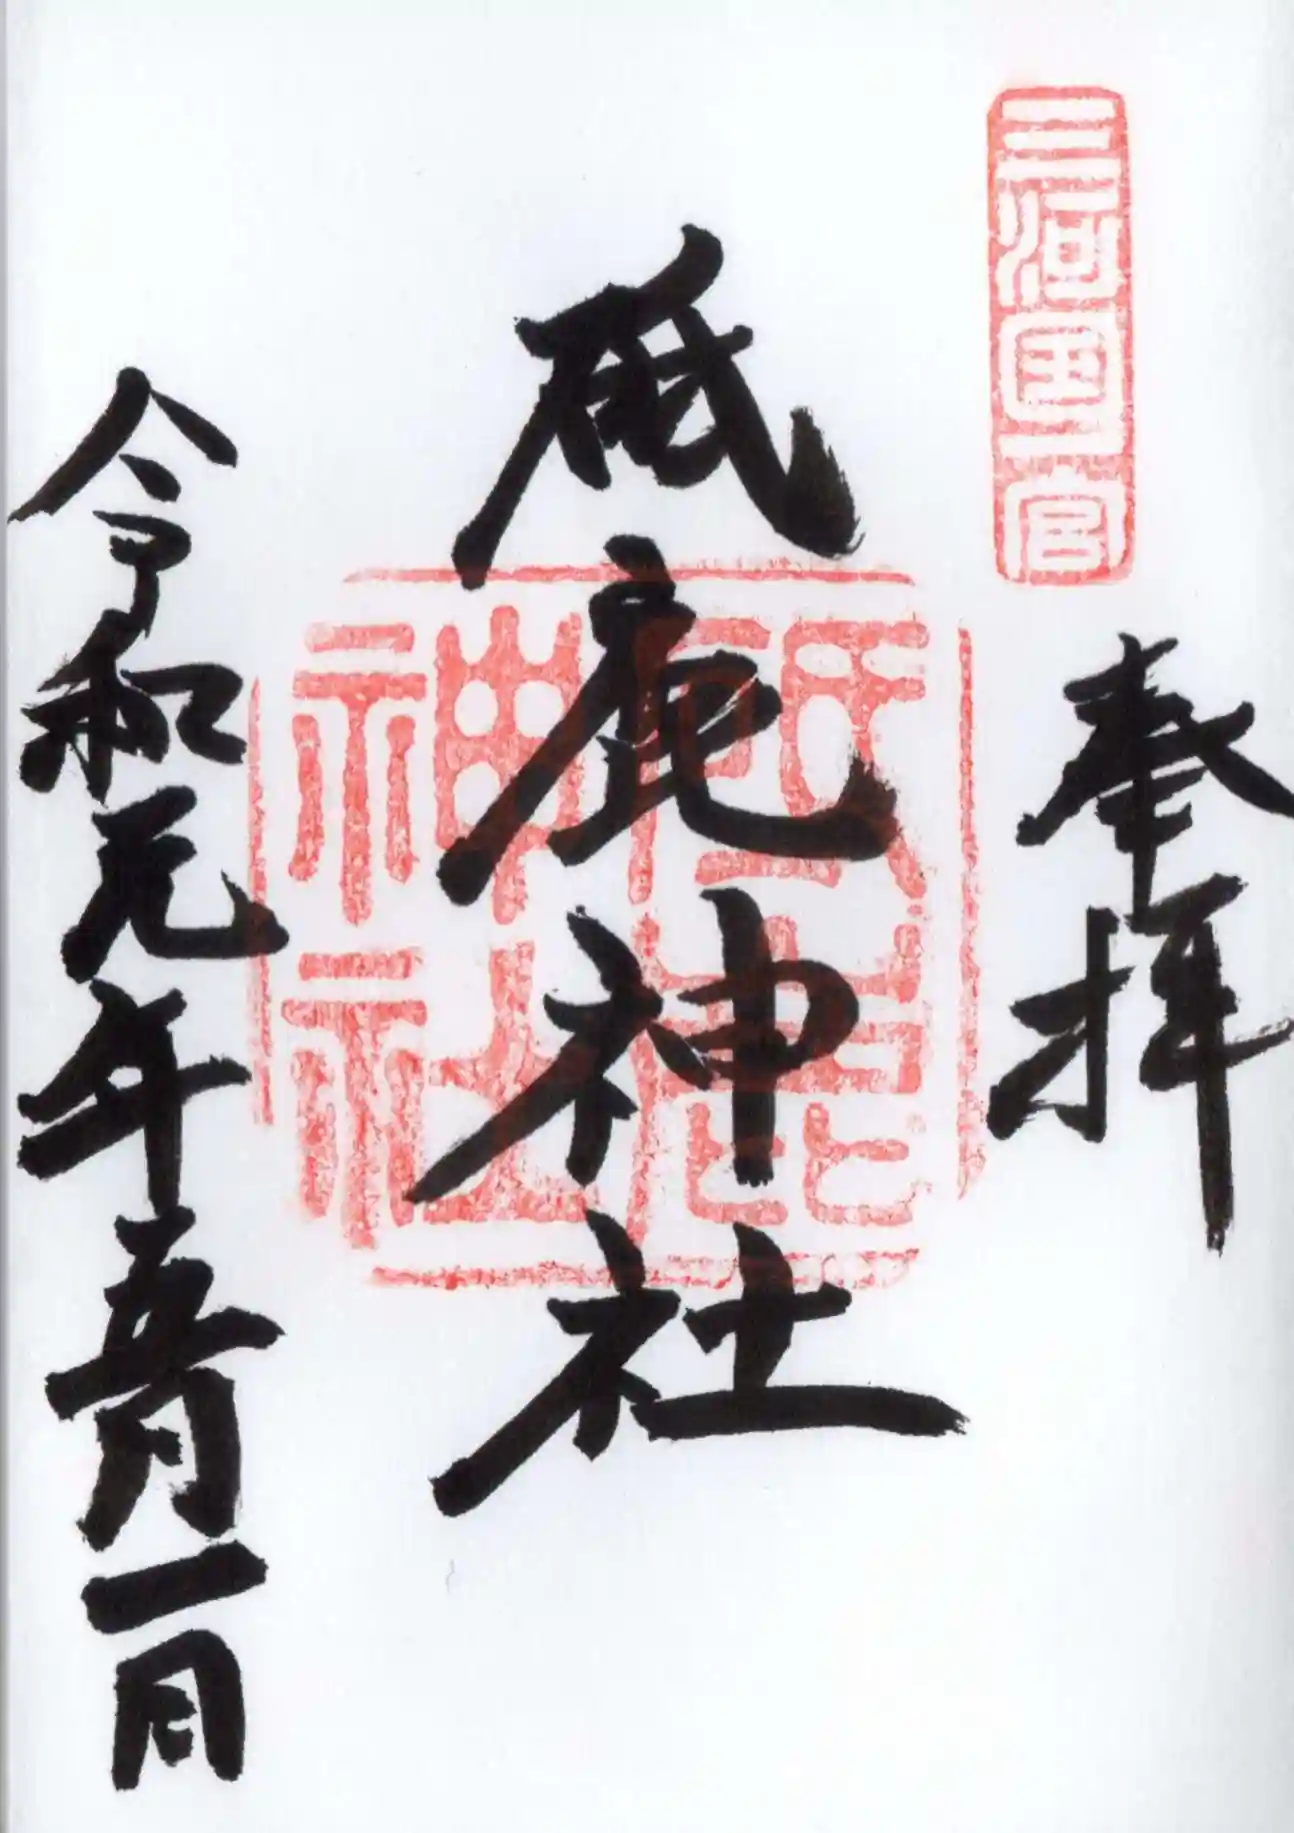 三河国一宮
奉拝
砥鹿神社
砥鹿
神社
令和元年五月一日